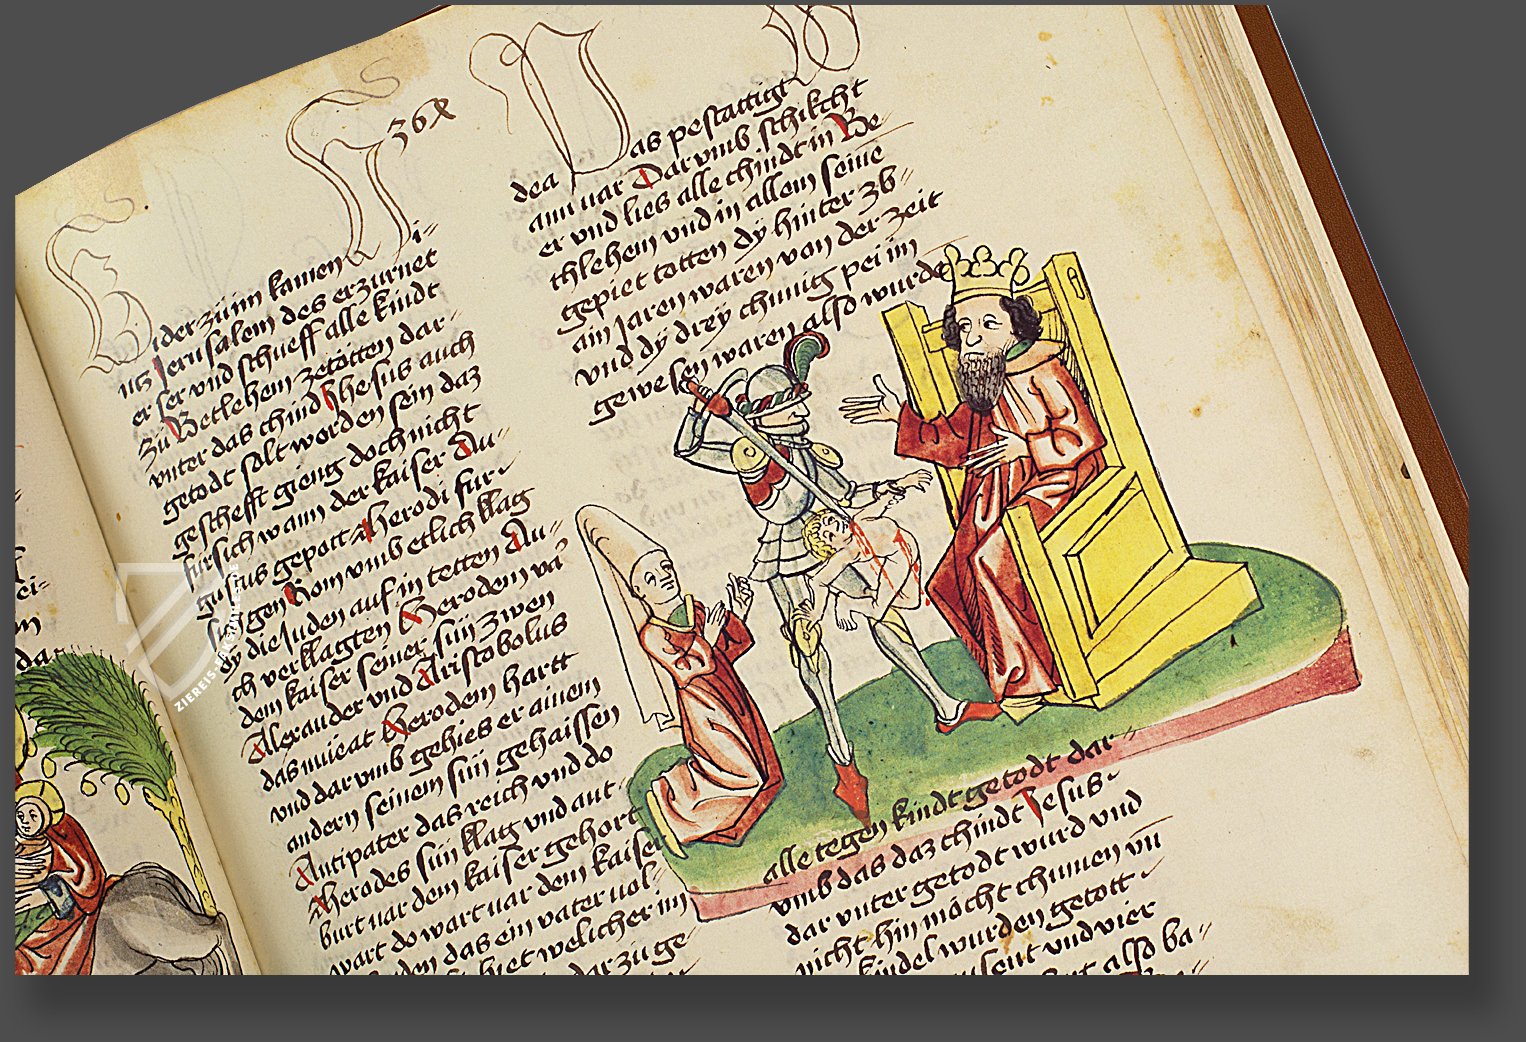 368
ider zü im kamen Hi-
ntz Jerusalem des erzurnet
er ser vnd schueff alle kindt
zü Betlehem zetötten dar-
vnter das chind Jhesus auch
getodt solt worden sein daz
geschefft gieng doch nicht
fürsich wann der kaiser Au-
gustus gepott Herodi fur-
sich gen Rom vmb etlich klag
dy die Juden auf in tetten Au-
ch verklagten Herodem vā
dem kaiser seiner sün zwen
Alexander vnd Aristobolus
das mueat Herodem hartt
vnd dar vmb gehies er ainem
andern seinem sün gehaissen
Antipater das reich vnd do
Herodes sün klag vnd ant-
burt uar dem kaiser gehort
wart do wart uar dem kaiser
den das ein vater uol-
hiet welicher im
dar zü ge-
Das pestättigt
dea
ann uar Dar vmb schikcht
er vnd lies alle chindt in Be-
thlehem vnd in allem seinē
gepiet totten dÿ hinter zb-
ain Jaren waren von der zeit
vnd dÿ drey chunig pei im
gewesen waren also wurde
alle tegen kindt getodt dar-
vmb das daz chindt Jesus
dar vnter getodt wurd vnd
nicht hin möcht chumen vn̄
kindel wurden getött
usent vnd vier
also ba-
ZIEREIS